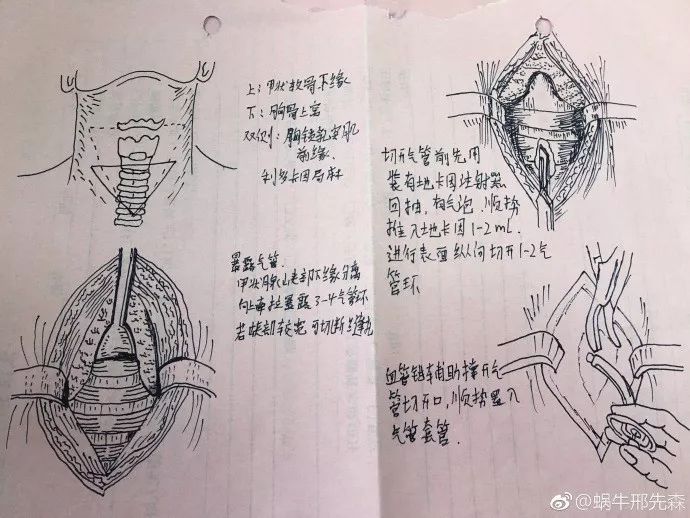 上：甲状软骨下缘
下：胸骨上窝
双侧：胸锁乳突肌
前缘.
利多卡因局麻
暴露气管.
甲状腺峡部下缘分离
向上牵拉暴露3-4气管环
若峡部较宽可切断缝扎
切开气管前先用
装有地卡因注射器
回抽，有气泡.顺势
推入地卡因1-2mL.
进行表面纵向切开1-2气
管环
血管钳辅助撑开气
管切开口，顺势置入
气管套管.
@蜗牛邢先森